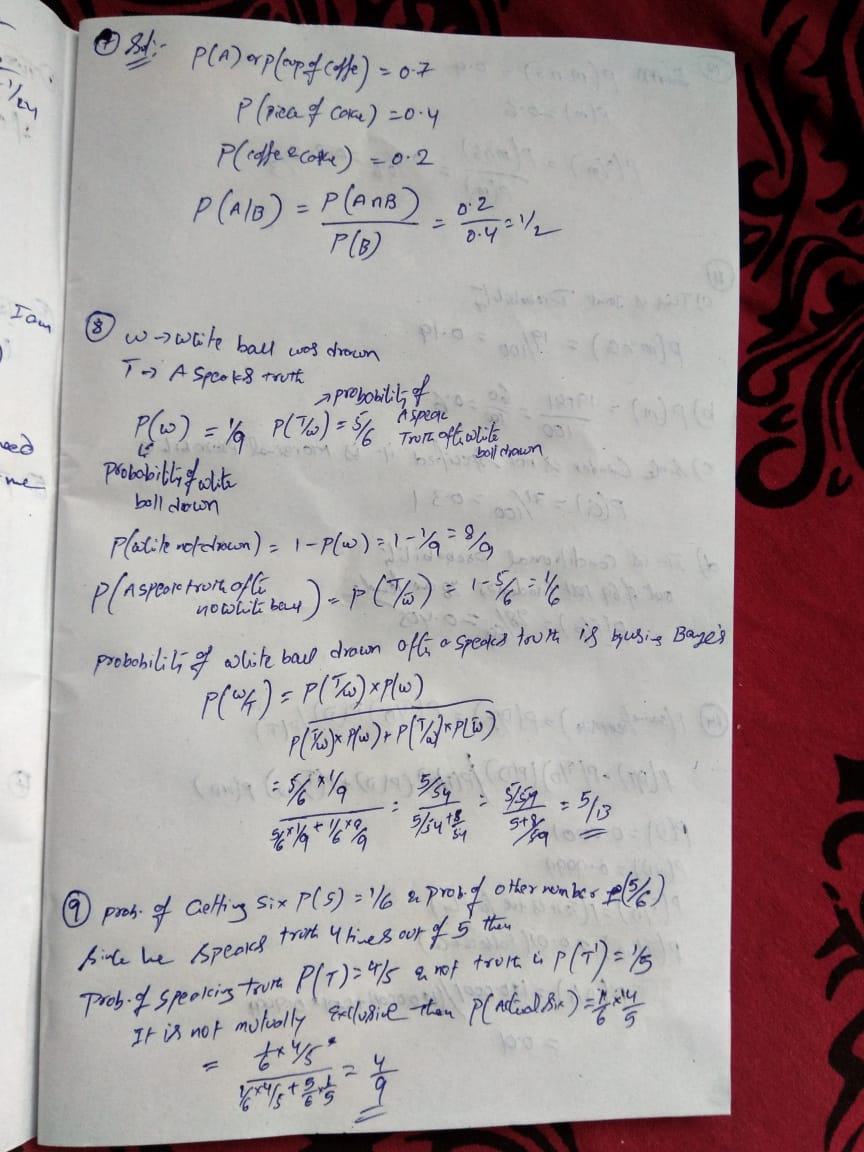 ⑦ Sol:-
P(A) or P(cup of coffe) = 0.7
P(piece of cake) = 0.4
P(coffe & cake) = 0.2
P(A|B) = P(A∩B) / P(B) = 0.2/0.4 = 1/2
⑧
w → white ball was drawn
T → A speaks truth
P(w) = 1/9 P(T/w) = 5/6 → probability of A speak Truth aftr white ball drawn
probability of white
ball drown
P(white not drawn) = 1 - P(w) = 1 - 1/9 = 8/9
P(A speak truth aftr no white ball) = P(T/w̄) = 1 - 5/6 = 1/6
probability of white ball drawn aftr a speaks truth is by using Baye's
P(w/T) = P(T/w) × P(w)
P(T/w) × P(w) + P(T/w̄) × P(w̄)
= 5/6 × 1/9 / 5/6 × 1/9 + 1/6 × 8/9 = 5/54 / 5/54 + 8/54 = 5/54 / 5+8/54 = 5/13
⑨ prob. of Getting six P(S) = 1/6 & prob. of other number (5/6)
Since he speaks truth 4 times out of 5 then
prob. of speaking truth P(T) = 4/5 & not truth is P(T') = 1/5
It is not mutually exclusive then P(Actual Six) = 1/6 × 4/5
= 1/6 × 4/5 / 1/6 × 4/5 + 5/6 × 1/5 = 4/9
I am
me